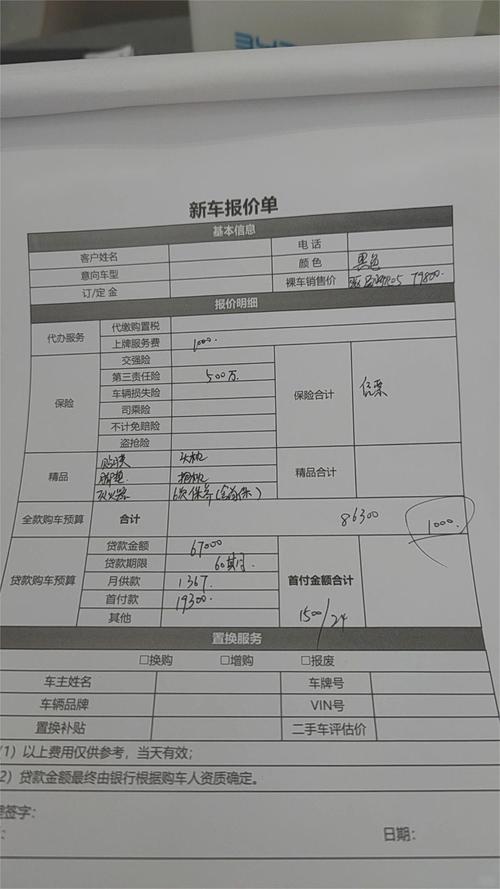 BYD
新车报价单
基本信息
客户姓名 电 话
意向车型 颜 色 黑色
订/定 金 裸车销售价 05 79800.
报价明细
代办服务 代缴购置税
上牌服务费 1000.
保险 交强险 保险合计
第三责任险 500万
车辆损失险
司乘险
不计免赔险
盗抢险
精品 贴膜 头枕 精品合计
脚垫 抱枕
灭火器 6次保养(含首保)
全款购车预算 合计 86300 1000.
贷款购车预算 贷款金额 67000 首付金额合计
贷款期限 60期
月供款 1367.
首付款 19300.
其他 1500/24
置换服务
□换购 □增购 □报废
车主姓名 车牌号
车辆品牌 VIN号
置换补贴 二手车评估价
1）以上费用仅供参考，当天有效；
2）贷款金额最终由银行根据购车人资质确定。
签字：
： 日期：